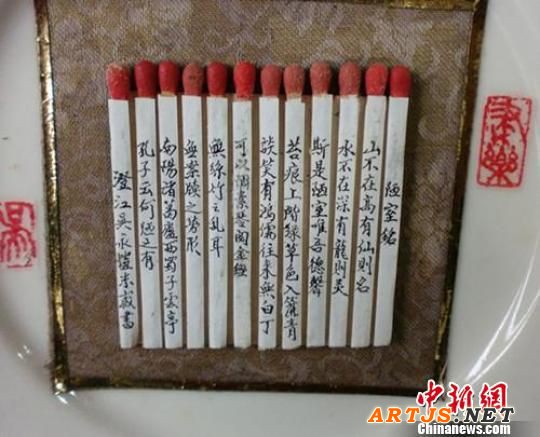 陋室銘
山不在高有仙則名
水不在深有龍則灵
斯是陋室唯吾德馨
苔痕上階綠草色入簾青
談笑有鴻儒往來無白丁
可以調素琴閱金經
無絲竹之乱耳
無案牘之勞形
南陽諸葛廬西蜀子雲亭
孔子云何陋之有
澄江吳永愷書
中新網
ARTJS.NET
Chinanews.com